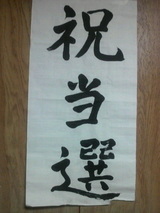 祝当選